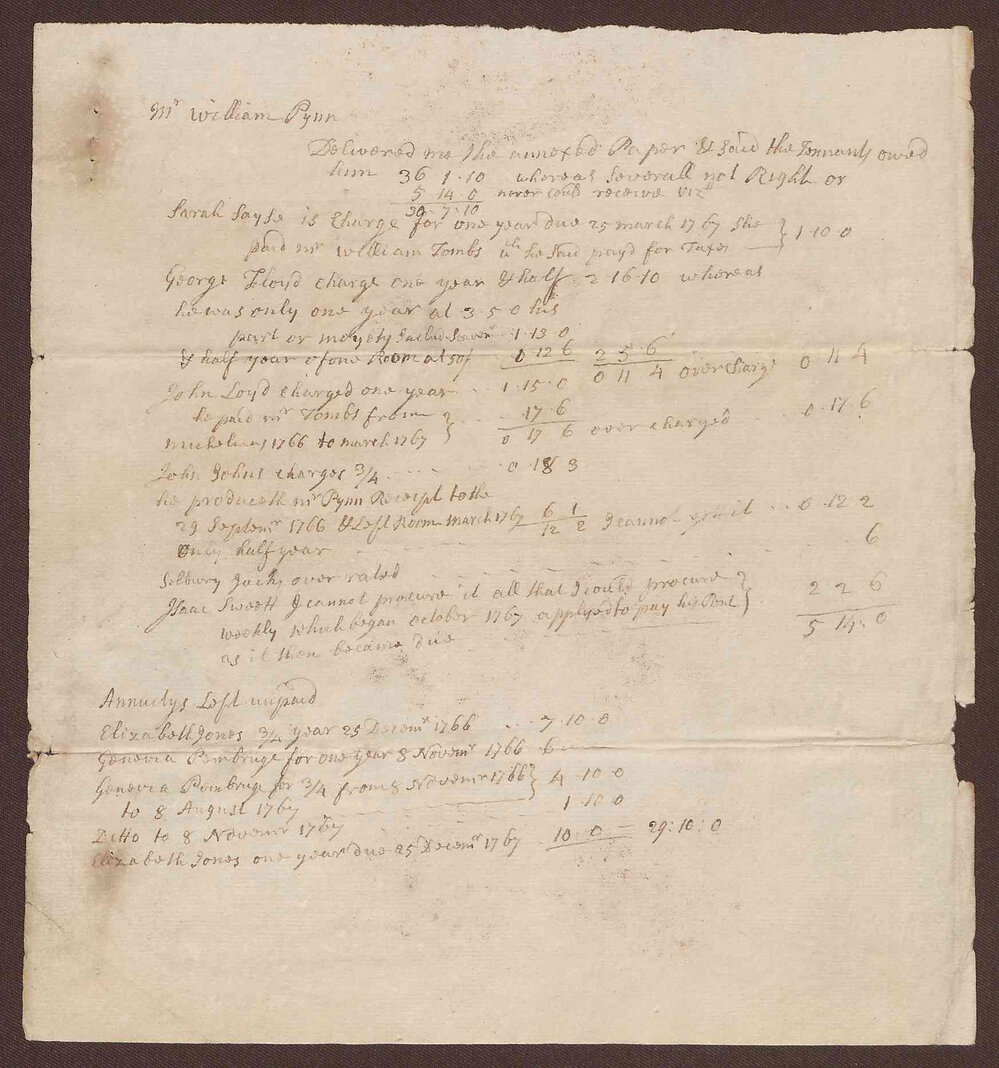 Mr William Pynn
Delivered me the annexed Paper & Said the Tennants owed
him 36 1 10 whereas Severall not Right or
5 14 0 never coud receive viz
30 7 10
Sarah Sayse is Charge for one year due 25 march 1767 She
paid mr William Tombs he Said payd for Taxes } 1 10 0
George Floyd charge one year & half 2 16 10 whereas
he was only one year at 3 5 0 his
part or moyety 1 13 0
& half year of one Room at 50/ 0 12 6 2 5 6
John Loyd charged one year 1 15 0 0 11 4 over charge 0 11 4
he paid mr Tombs from } 17 6
michelmas 1766 to march 1767 0 17 6 over charged 0 17 6
John Johns charges 3/4 0 18 3
he produceth mr Pynn Receipt to the
29 Septemr 1766 & Left Room march 1767 6 1 I cannot get it 0 12 2
only half year 12 2
Selbury Jacks over rated 6
Isaac Sweett I cannot procure it all that I could procure }
weekly which began october 1767 applyed to pay his Rent } 2 2 6
as it then became due 5 14 0
Annuitys Left unpaid
Elizabeth Jones 3/4 year 25 Decemr 1766 7 10 0
Genevia Pembruge for one year 8 Novemr 1766 6
Genevia Pembruge for 3/4 from 8 Novemr 1766 } 4 10 0
to 8 August 1767
Ditto to 8 Novemr 1767 1 10 0
Elizabeth Jones one year due 25 Decemr 1767 10 0 29 10 0